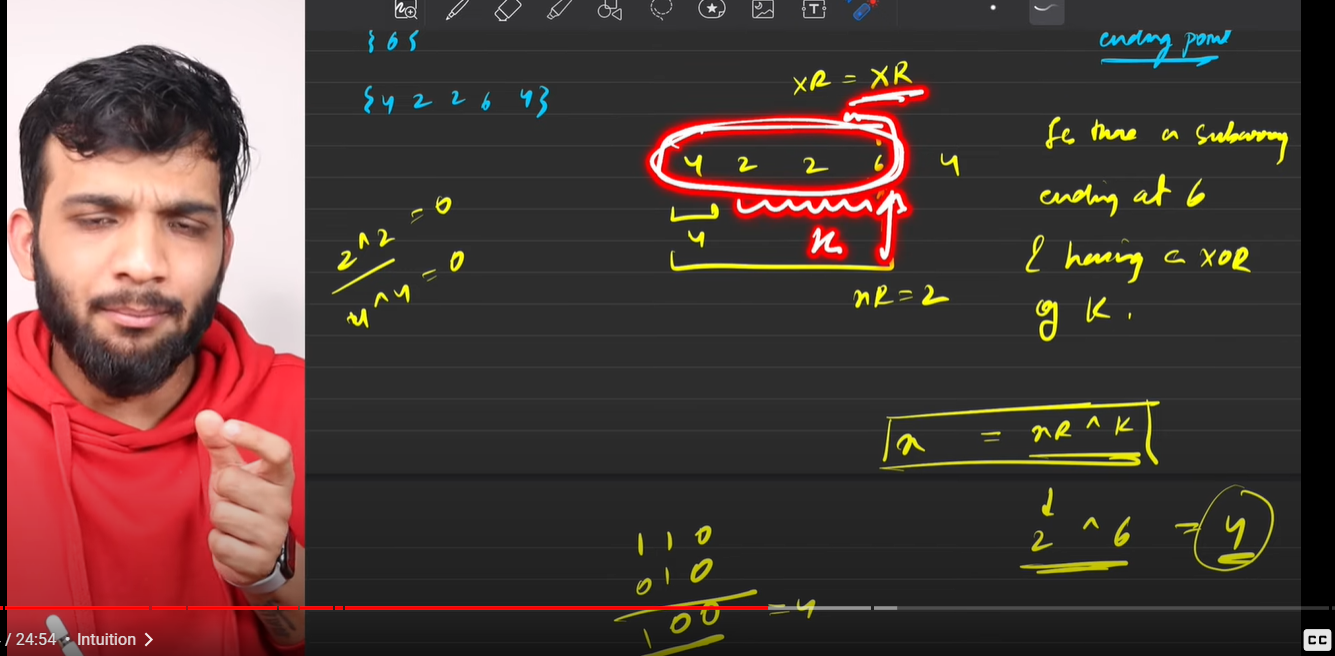 { 6 }
ending point
{ 4 2 2 6 4 }
XR = XR
4 2 2 6 4
Is there a subarray
ending at 6
& having a XOR
of K.
2 ^ 2 = 0
4 ^ 4 = 0
4
K
XR = 2
x = XR ^ K
2 ^ 6 = 4
1 1 0
0 1 0
1 0 0 = 4
/ 24:54 • Intuition >
CC